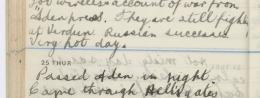 Got wireless account of war from
"Aden press". They are still fighting
at Verdun Russian successes
Very hot day.
25 THUR
Passed Aden in night.
Came through Hells gates